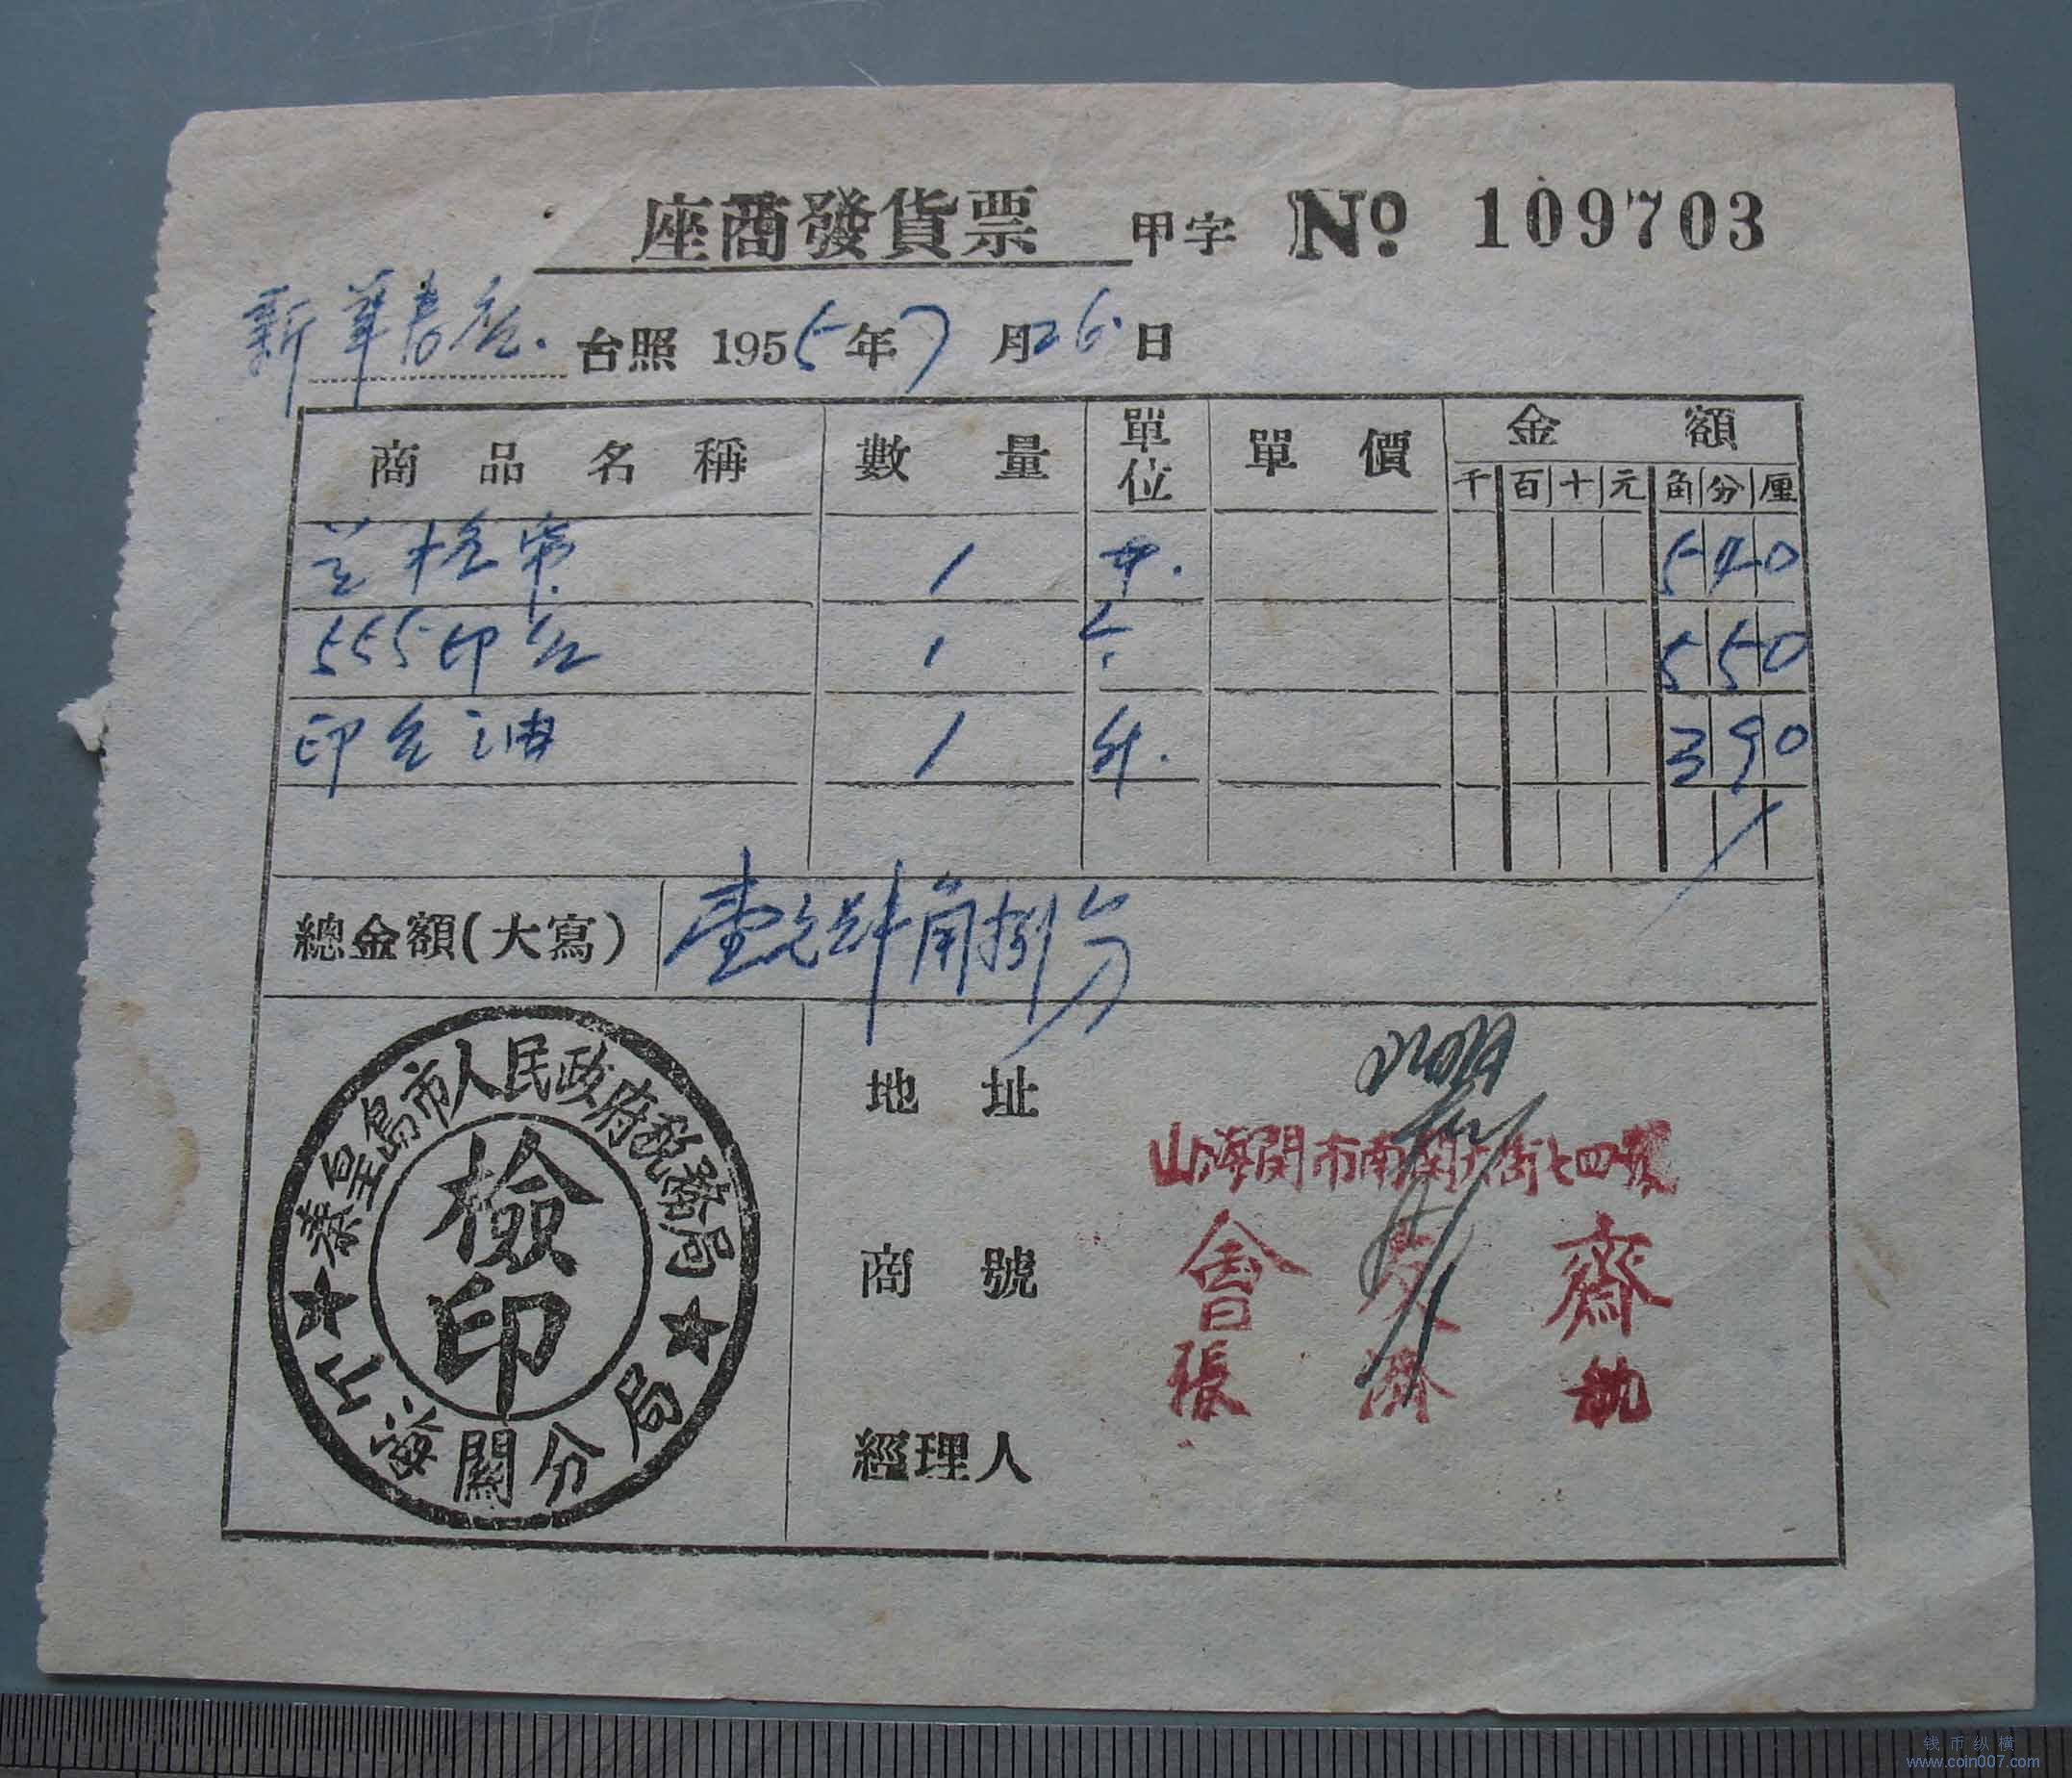 座商發貨票 甲字 No 109703
新華書店 台照 1955年7月26日
商品名稱 數量 單位 單價 金額
千 百 十 元 角 分 厘
1 540
555印台 1 个 550
印台油 1 390
總金額(大寫) 壹元肆角捌分
秦皇島市人民政府稅務局
檢印
山海關分局
地址 山海関市南関大街七四號
商號 會文齋
張濟執
經理人
钱币纵横
www.coin007.com